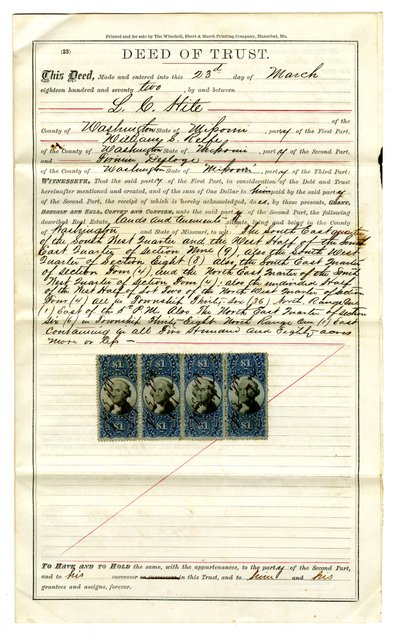 Printed and for sale by The Winchell, Ebert & Marsh Printing Company, Hannibal, Mo.
(23)
DEED OF TRUST.
This Deed, Made and entered into this 23d day of March
eighteen hundred and seventy two, by and between
L. C. Hite
of the
County of Washington State of Missouri, party of the First Part,
William S.
of the County of Washington State of Missouri, party of the Second Part,
and Firmin Desloge
of the County of Washington State of Missouri, party of the Third Part:
WITNESSETH, That the said party of the First Part, in consideration of the Debt and Trust
hereinafter mentioned and created, and of the sum of One Dollar to him paid by the said party
of the Second Part, the receipt of which is hereby acknowledged, does, by these presents, GRANT,
BARGAIN AND SELL, CONVEY AND CONFIRM, unto the said party of the Second Part, the following
described Real Estate, lands and tenements, situate, lying and being in the County
of Washington and State of Missouri, to wit: The South East quarter
of the South West Quarter and the West Half of the South
East Quarter of section Nine (9) also the South West
Quarter of section Eight (8) also the South East Quarter
of section Four (4) and the North East Quarter of the South
West Quarter of section Four (4): also the undivided Half
of the West Half of Lot Two of the North West Quarter of section
Four (4) all in Township Thirty Six (36) North Range One
(1) East of the 5th P.M. Also The North East Quarter of section
Six (6) in Township Thirty Eight North Range One (1) East
Containing in all Five Hundred and Eighty acres
more or less —
$1 $1 $1 $1
TO HAVE AND TO HOLD the same, with the appurtenances, to the party of the Second Part,
and to his successor or successors in this Trust, and to and his
grantees and assigns, forever.